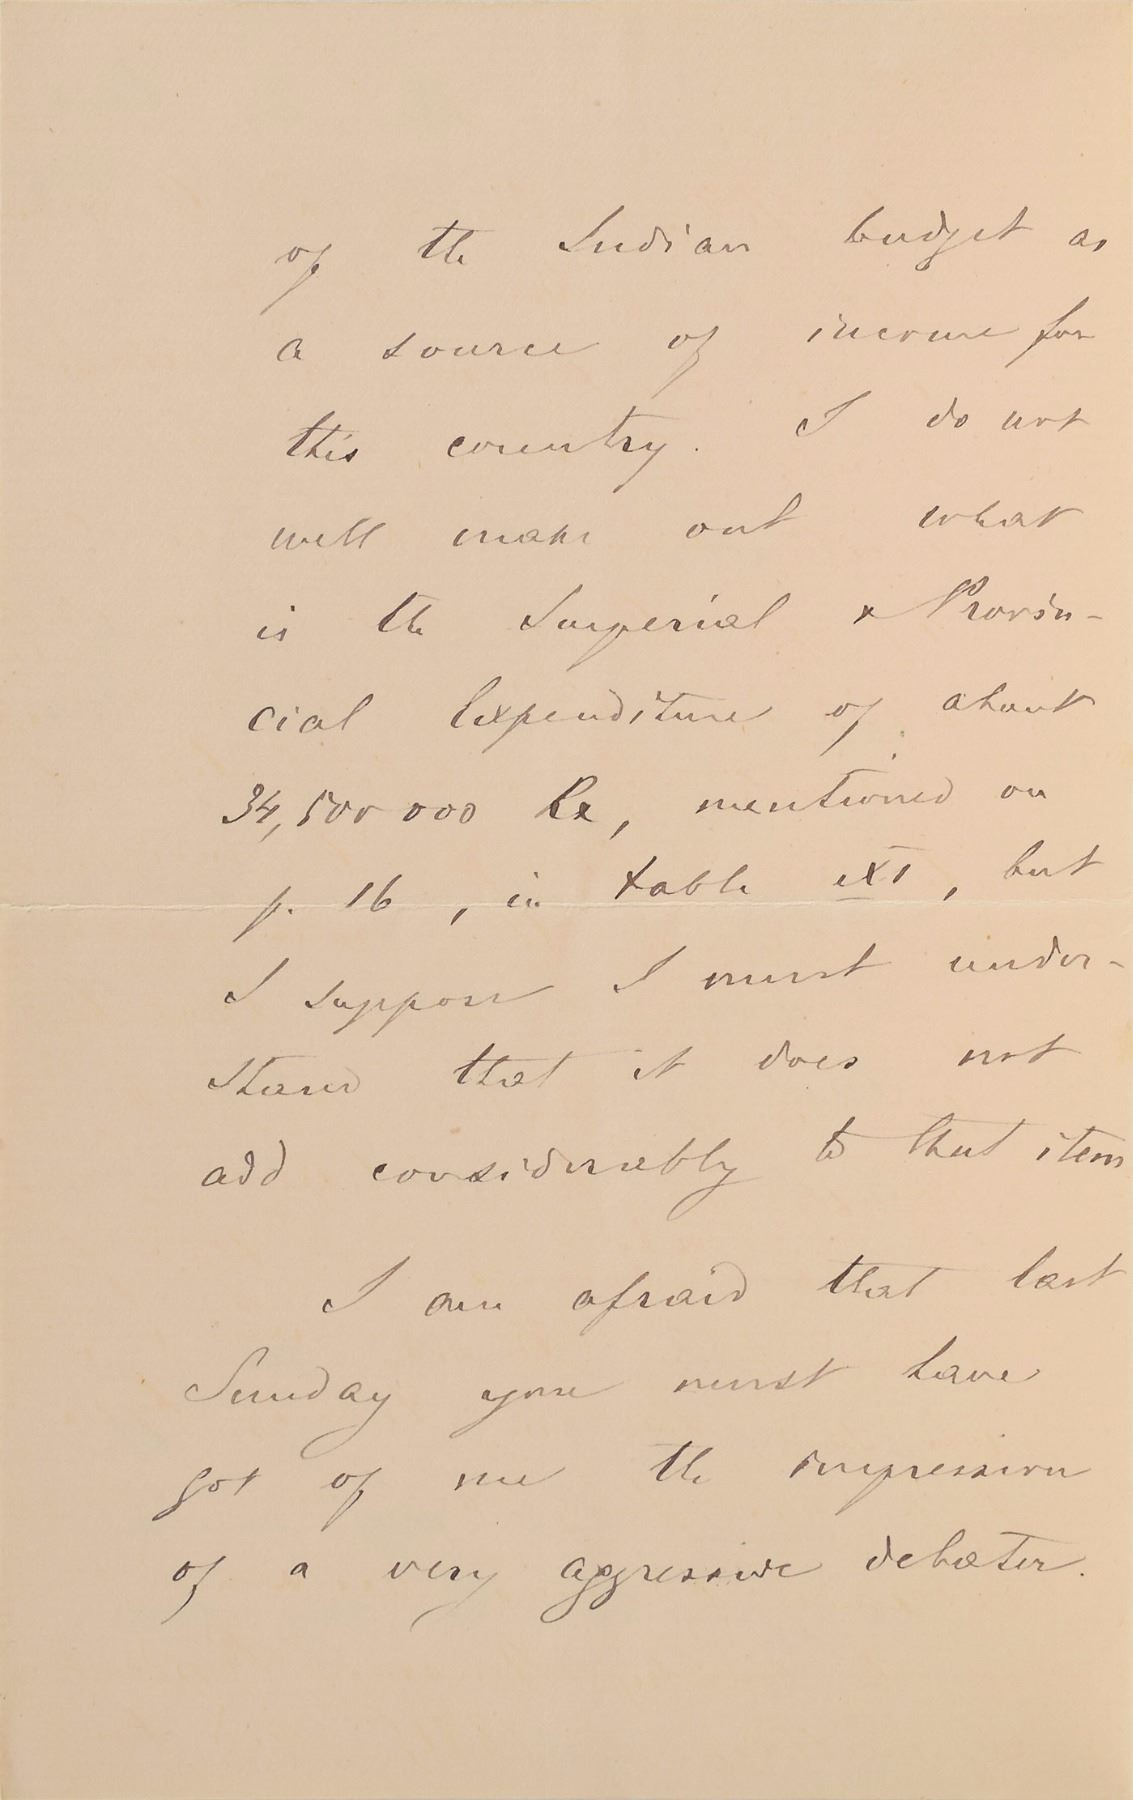 of the Indian budget as
a source of income for
this country. I do not
well make out what
is the Imperial & Provin-
cial Expenditure of about
34,500 000 Rx, mentioned on
p. 16, in table, but
I suppose I must under-
stand that it does not
add considerably to that item
I am afraid that last
Sunday you must have
got of me the impression
of a very aggressive debater.